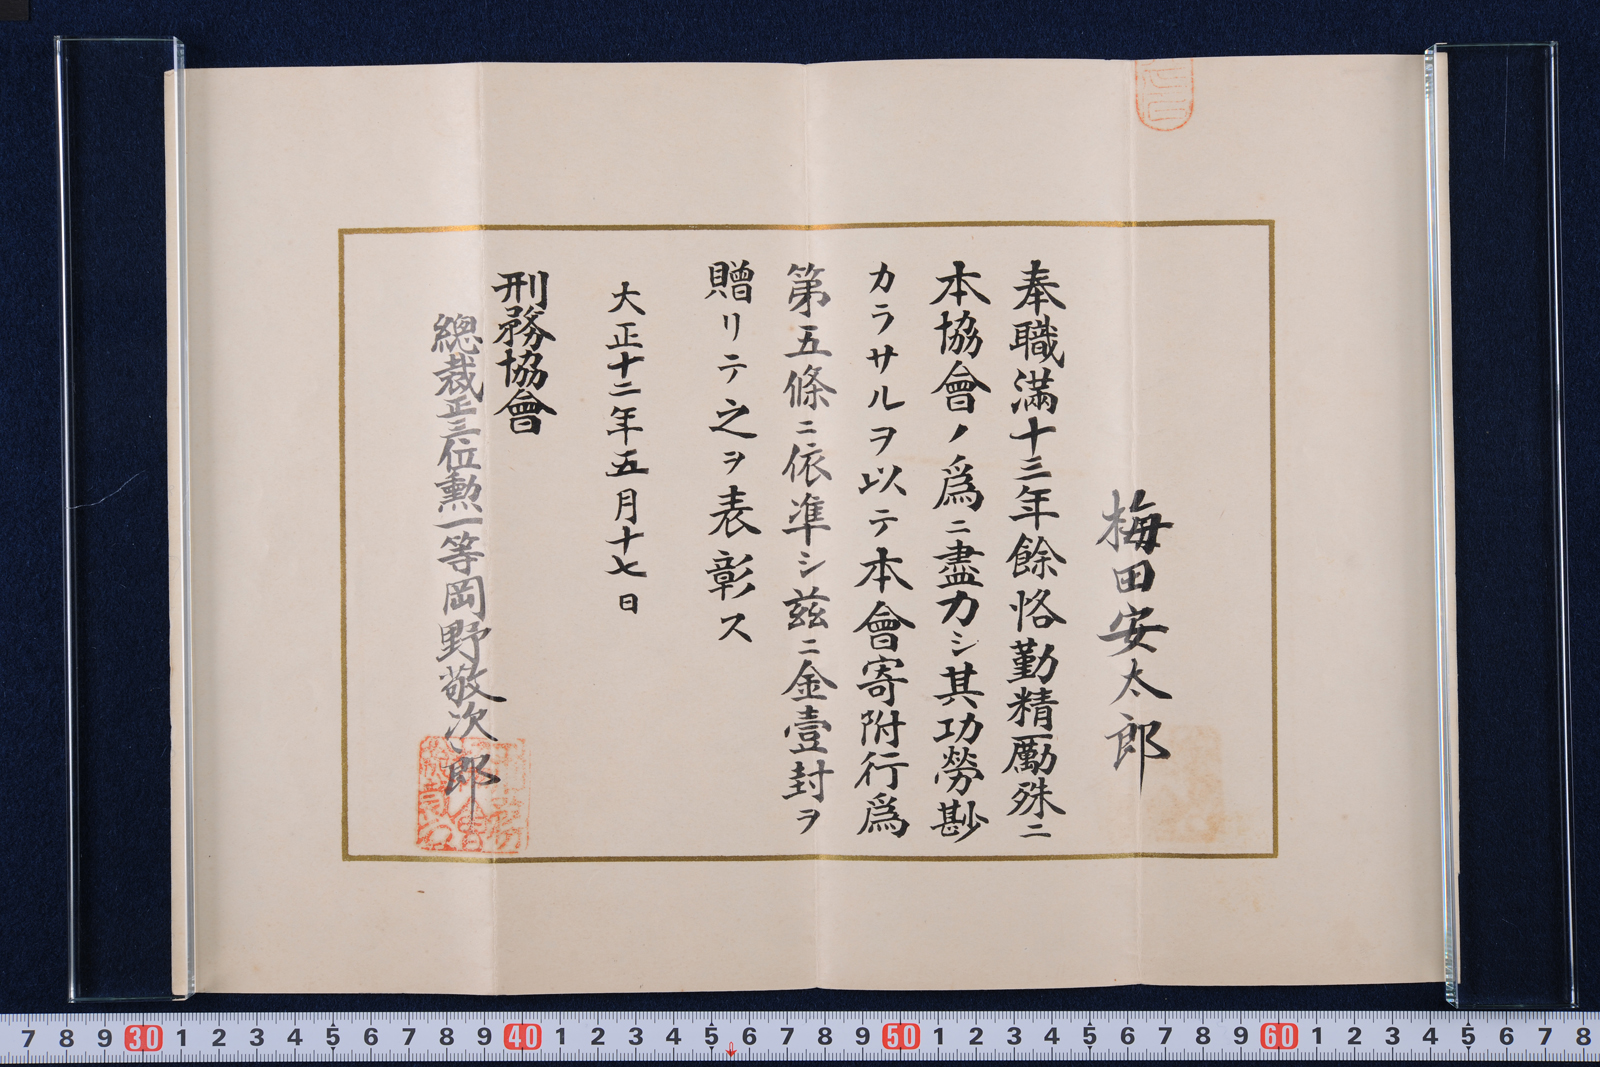 梅田安太郎
奉職滿十三年餘恪勤精勵殊ニ
本協會ノ爲ニ盡力シ其功勞尠
カラサルヲ以テ本會寄附行爲
第五條ニ依準シ茲ニ金壹封ヲ
贈リテ之ヲ表彰ス
大正十二年五月十七日
刑務協會
總裁正三位勲一等岡野敬次郎
7 8 9 30 1 2 3 4 5 6 7 8 9 40 1 2 3 4 5 6 7 8 9 50 1 2 3 4 5 6 7 8 9 60 1 2 3 4 5 6 7 8